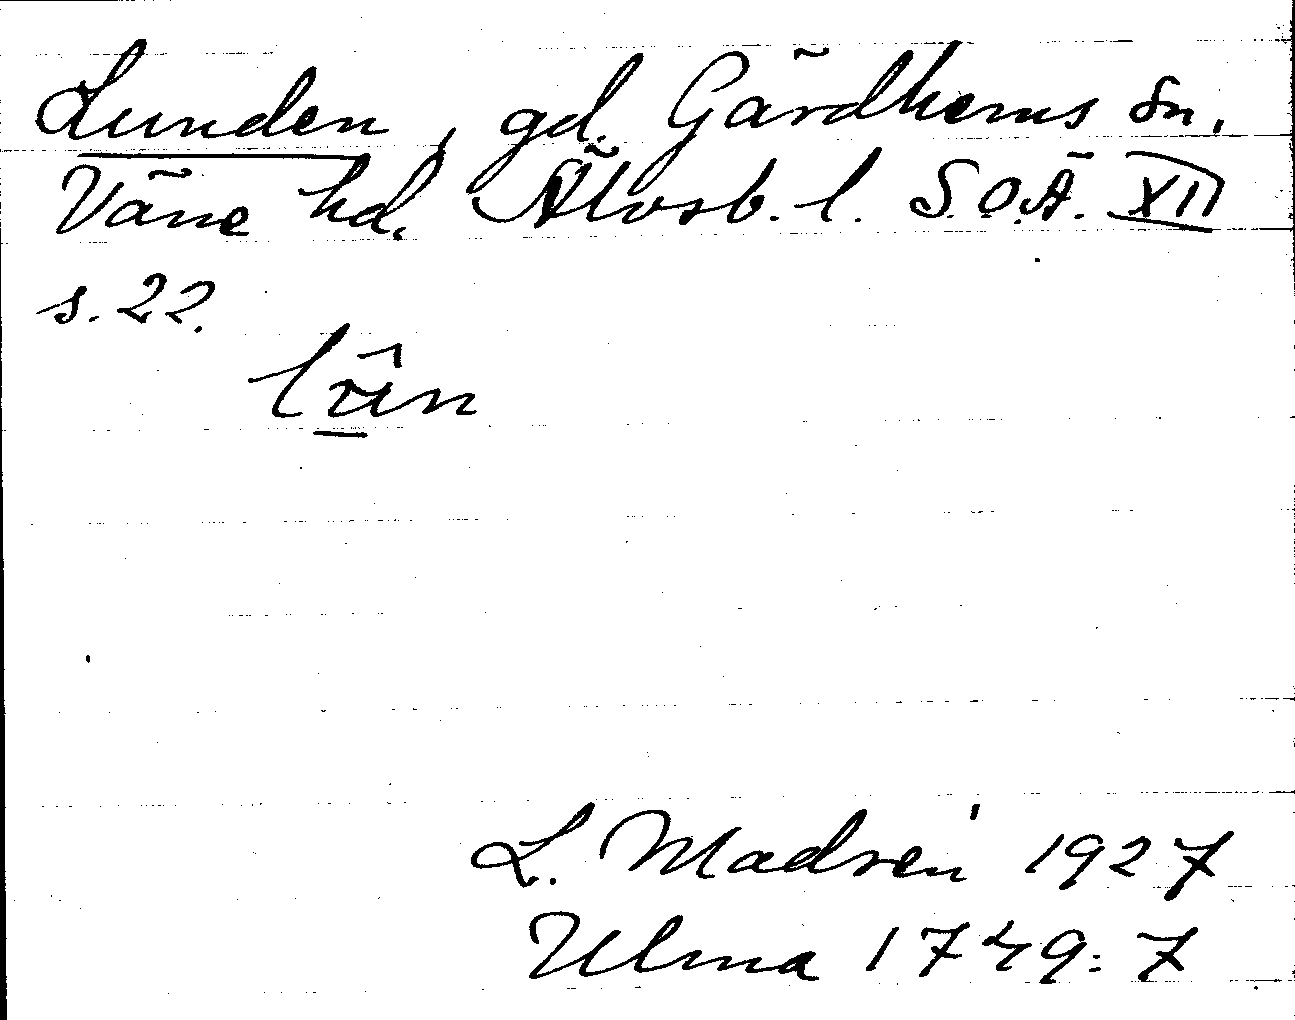 Lunden, gd. Gärdhems sn,
Väne hd. Älvsb. l. S.O.Ä. XII
s. 22.
L. Madrén 1927
Ulma 1749:7